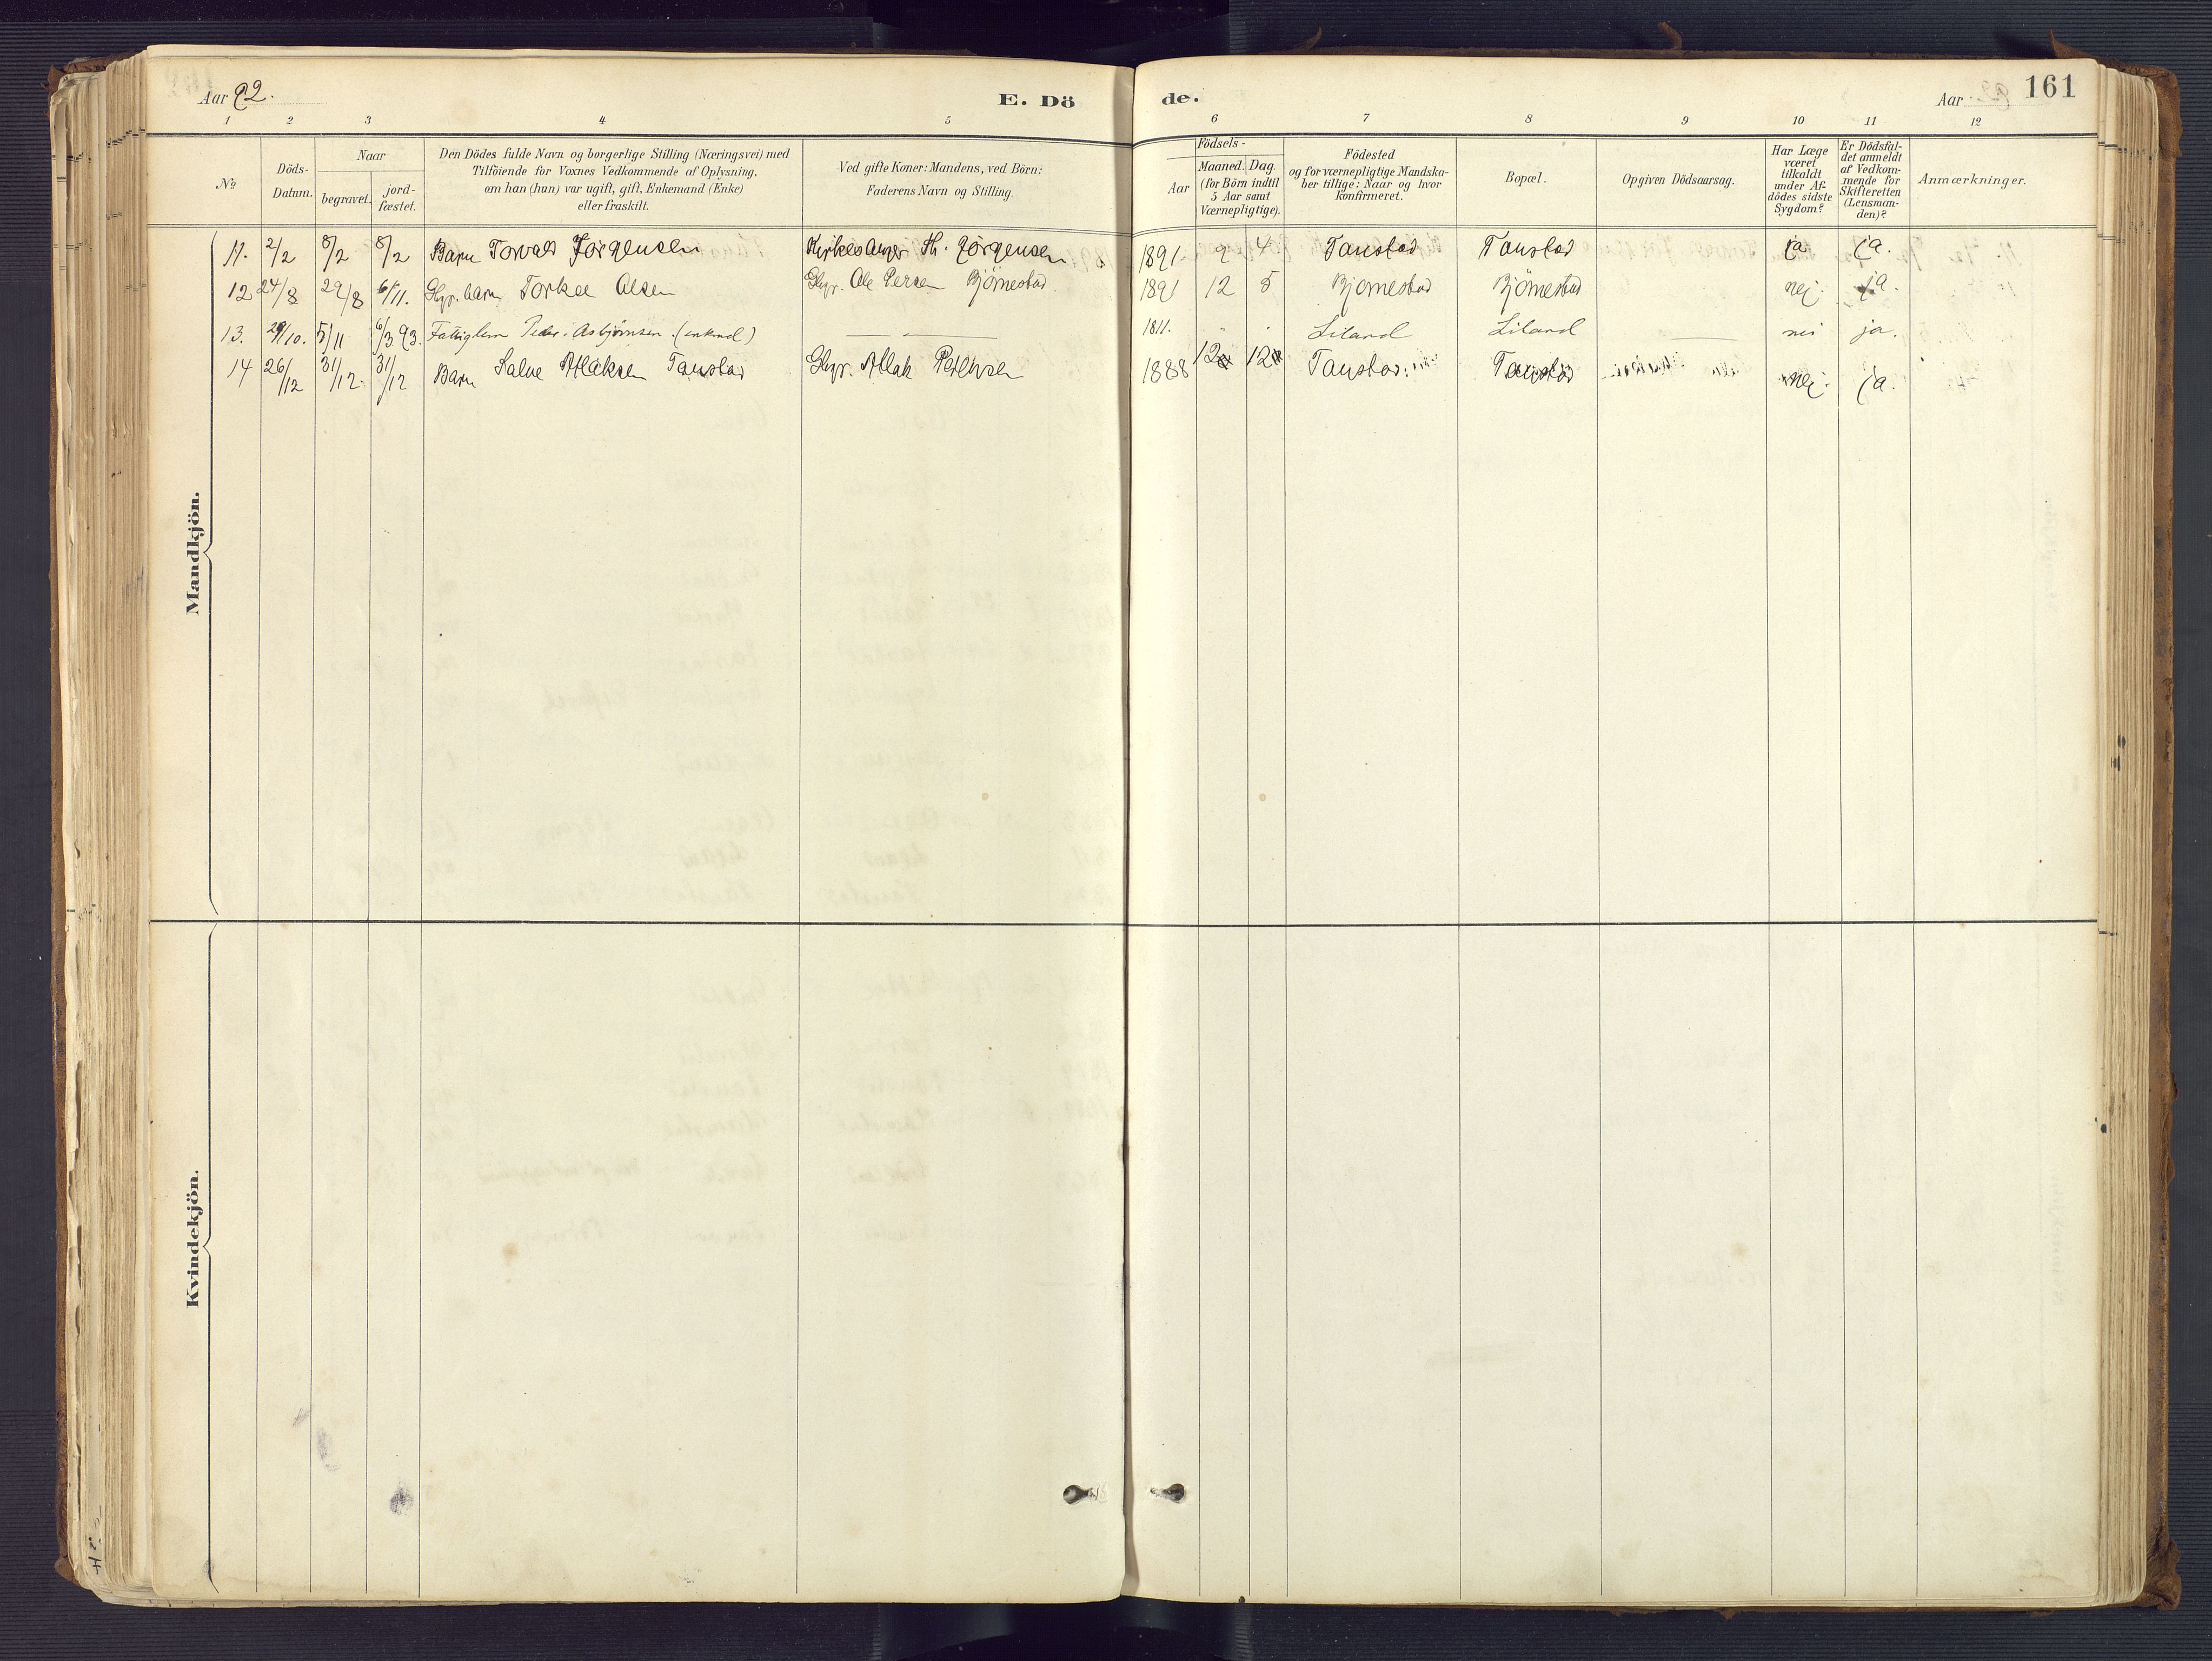 Aar 92.
E. Dö
de.
Aar
161
1 2 3 4 5 6 7 8 9 10 11 12
No
Döds-Datum.
Naar
begravet.
jord-fæstet.
Den Dödes fulde Navn og borgerlige Stilling (Næringsvei) med
Tilföiende for Voxnes Vedkommende af Oplysning,
om han (hun) var ugift, gift, Enkemand (Enke)
eller fraskilt.
Ved gifte Koner: Mandens, ved Börn:
Faderens Navn og Stilling.
Födsels-
Aar
Maaned. Dag.
(for Börn indtil
5 Aar samt
Værnepligtige).
Födested
og for værnepligtige Mandska-
ber tillige: Naar og hvor
konfirmeret.
Bopæl.
Opgiven Dödsaarsag.
Har Læge
været
tilkaldt
under Af-
dödes sidste
Sygdom?
Er Dödsfal-
det anmeldt
af Vedkom-
mende for
Skifteretten
(Lensman-
den)?
Anmærkninger.
Mandkjön.
11. 2/2 8/2 8/2 Barn Torvald Jörgensen Kirkesanger Th. Jörgensen 1891. 9 4 Taustad Taustad ja ja.
12 24/8 29/8 6/11. Gbr. barn Torkel Olsen Gbr. Ole Persen Björnestad 1891 12 5 Bjornestad Björnestad nej. ja.
13. 29/10. 5/11 6/3 93. Fattiglem Peder Asbjörnsen (enkmd) — „ — 1811. „ „ Liland Liland — nei ja.
14 26/12 31/12 31/12 Barn Salve Atlaksen Taustad Gbr. Atlak Pedersen 1888 12 12 Taustad Taustad nej. ja.
Kvindekjön.